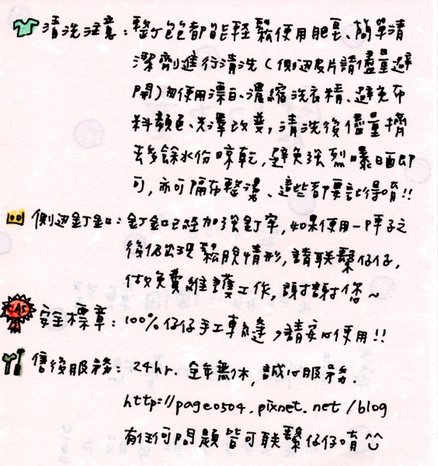 清洗注意：整個包都能輕鬆使用肥皂、簡單清
潔劑進行清洗(側邊皮片請儘量避
開)勿使用漂白、濃縮洗衣精、避免布
料顏色、光澤改變，清洗後儘量擠
去多餘水份晾乾，避免強烈曝曬即
可，亦可隔布整燙、這些都要記得唷!!
側邊釘釦：釘釦已經加強釘牢，如果使用一陣子之
後依然出現鬆脫情形，請联繫仔仔，
做免費維護工作，謝謝您~
安全標章：100%仔仔手工車縫，請安心使用!!
售後服務：24hr. 全年無休，誠心服務.
http://page0504.pixnet.net/blog
有任何問題皆可联繫仔仔唷